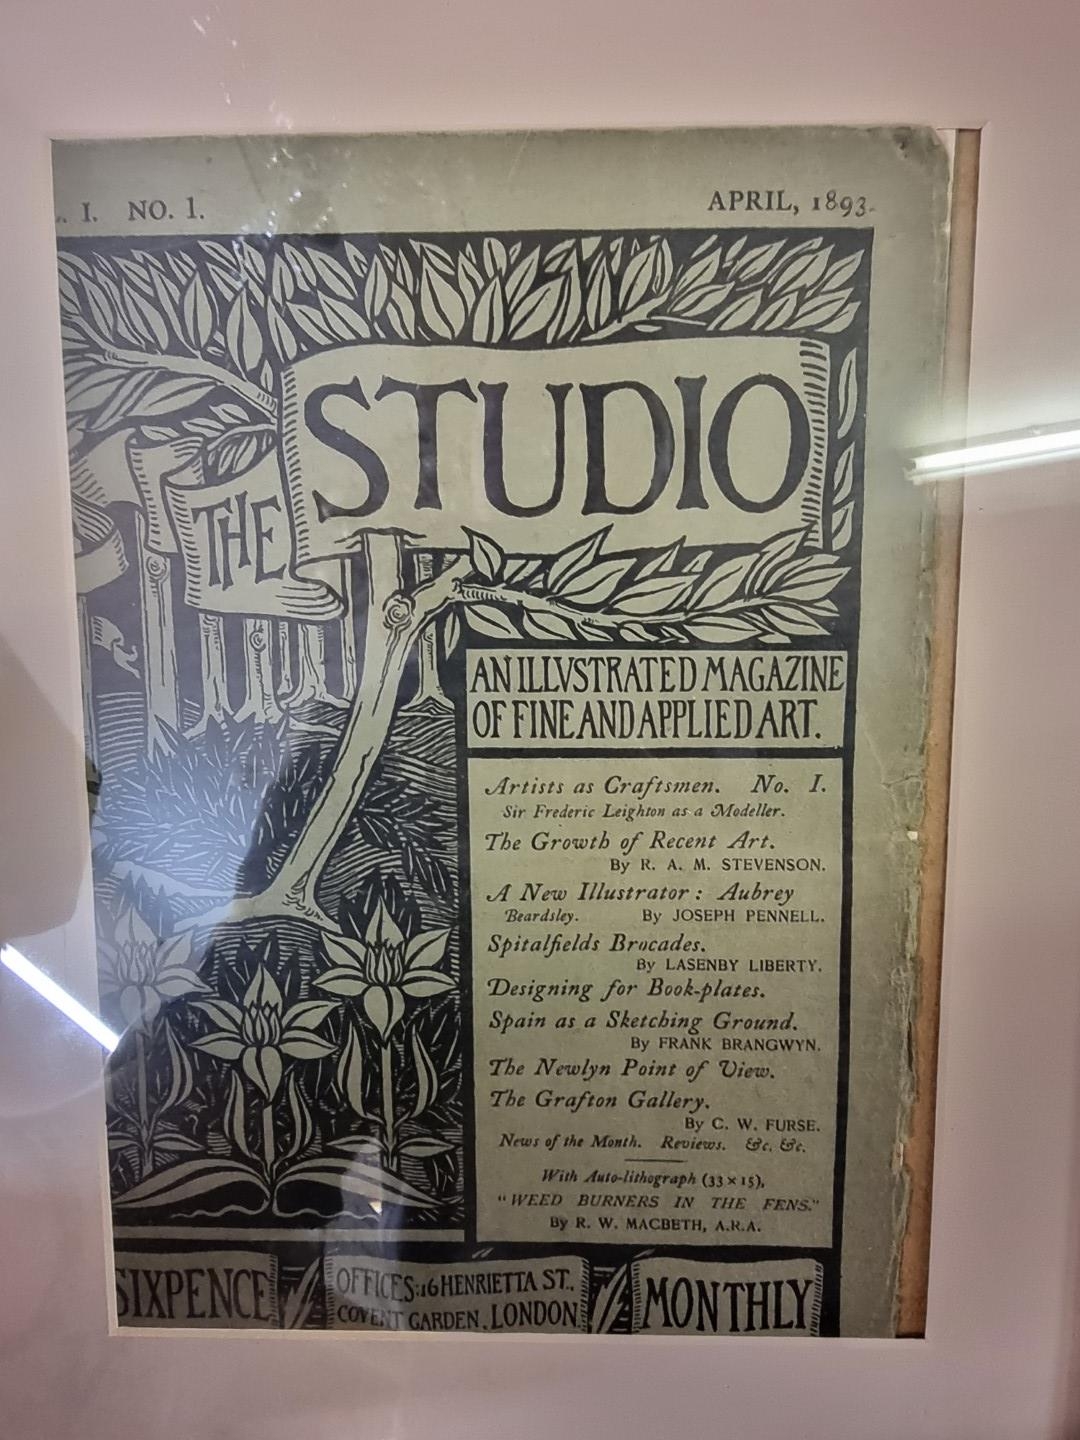 . I. NO. 1.
APRIL, 1893.
THE
STUDIO
AN ILLVSTRATED MAGAZINE
OF FINE AND APPLIED ART.
Artists as Craftsmen. No. I.
Sir Frederic Leighton as a Modeller.
The Growth of Recent Art.
By R. A. M. STEVENSON.
A New Illustrator: Aubrey
Beardsley. By JOSEPH PENNELL.
Spitalfields Brocades.
By LASENBY LIBERTY.
Designing for Book-plates.
Spain as a Sketching Ground.
By FRANK BRANGWYN.
The Newlyn Point of View.
The Grafton Gallery.
By C. W. FURSE.
News of the Month. Reviews. &c. &c.
With Auto-lithograph (33 × 15),
"WEED BURNERS IN THE FENS."
By R. W. MACBETH, A.R.A.
SIXPENCE
OFFICES: 16 HENRIETTA ST.,
COVENT GARDEN. LONDON
MONTHLY